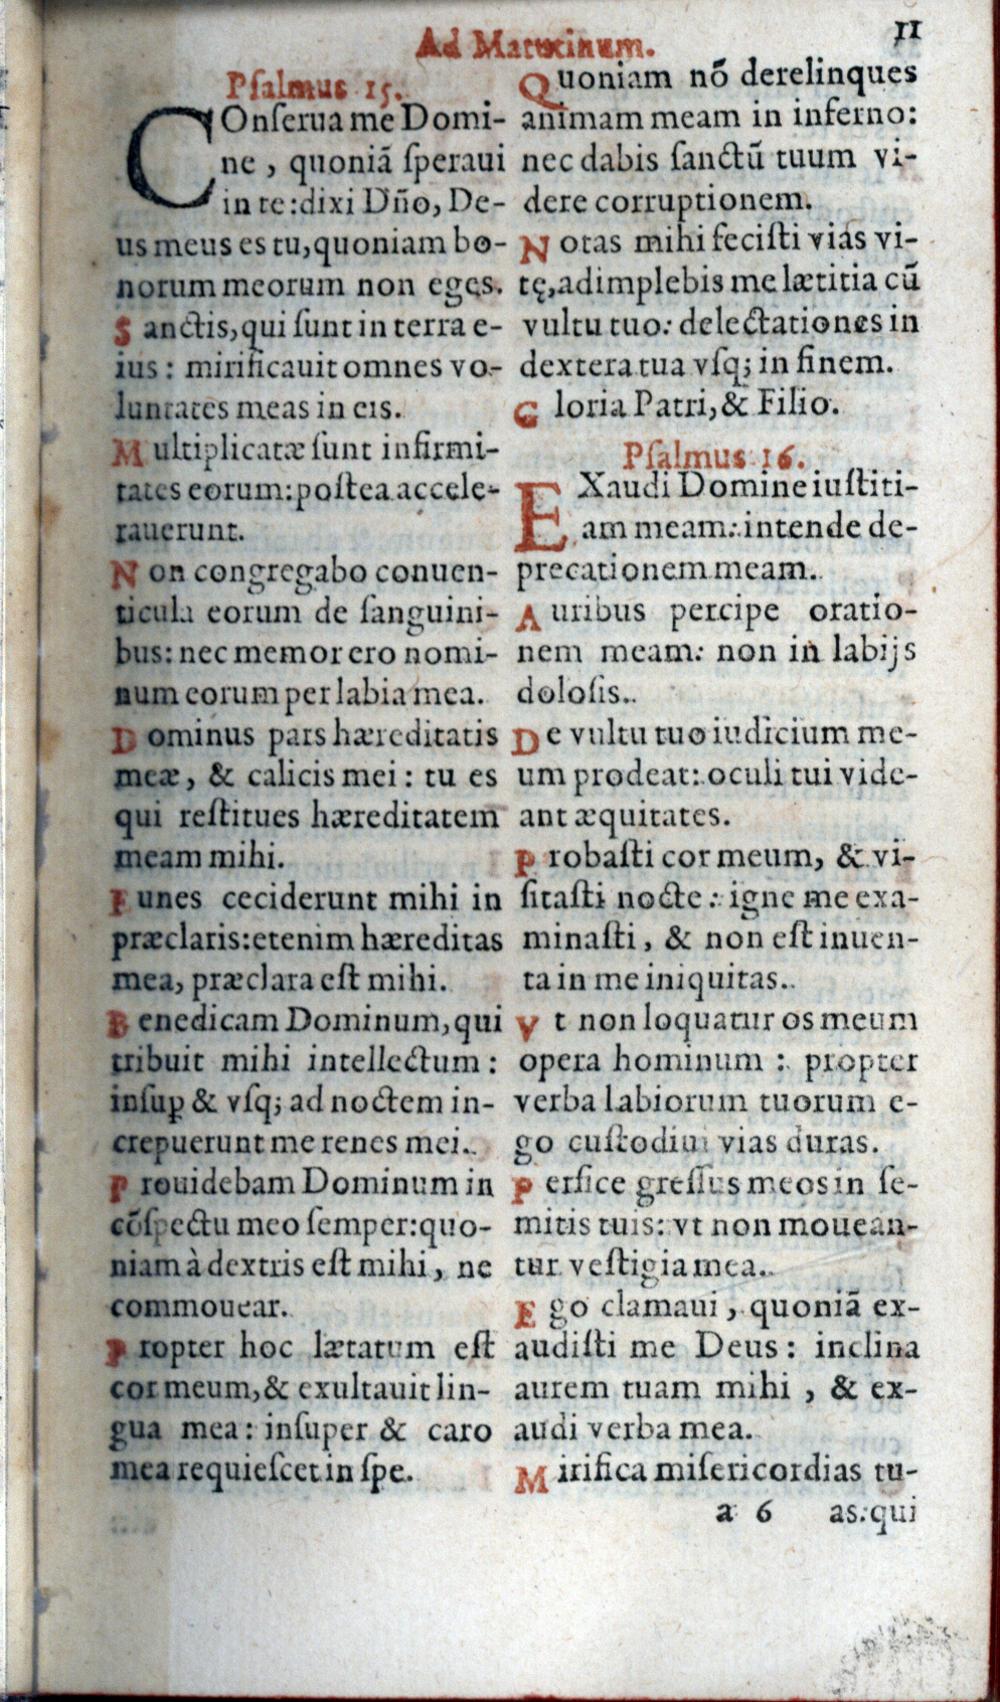 Ad Matutinum.
11
Psalmus 15.
COnſerua me Domi-
ne, quoniã ſperaui
in te: dixi Dño, De-
us meus es tu, quoniam bo-
norum meorum non eges.
Sanctis, qui ſunt in terra e-
ius: mirificauit omnes vo-
luntates meas in eis.
Multiplicatæ ſunt infirmi-
tates eorum: poſtea accele-
rauerunt.
Non congregabo conuen-
ticula eorum de ſanguini-
bus: nec memor ero nomi-
num eorum per labia mea.
Dominus pars hæreditatis
meæ, & calicis mei: tu es
qui reſtitues hæreditatem
meam mihi.
Funes ceciderunt mihi in
præclaris: etenim hæreditas
mea, præclara eſt mihi.
Benedicam Dominum, qui
tribuit mihi intellectum:
inſuꝑ & vſq; ad noctem in-
crepuerunt me renes mei.
Prouidebam Dominum in
cõſpectu meo ſemper: quo-
niam à dextris eſt mihi, ne
commouear.
Propter hoc lætatum eſt
cor meum, & exultauit lin-
gua mea: inſuper & caro
mea requieſcet in ſpe.
Quoniam nõ derelinques
animam meam in inferno:
nec dabis ſanctũ tuum vi-
dere corruptionem.
Notas mihi feciſti vias vi-
tę, adimplebis me lætitia cũ
vultu tuo: delectationes in
dextera tua vſq; in finem.
Gloria Patri, & Filio.
Psalmus 16.
EXaudi Domine iuſtiti-
am meam: intende de-
precationem meam.
Auribus percipe oratio-
nem meam: non in labijs
doloſis.
De vultu tuo iudicium me-
um prodeat: oculi tui vide-
ant æquitates.
Probaſti cor meum, & vi-
ſitaſti nocte: igne me exa-
minaſti, & non eſt inuen-
ta in me iniquitas.
Vt non loquatur os meum
opera hominum: propter
verba labiorum tuorum e-
go cuſtodiui vias duras.
Perfice greſſus meos in ſe-
mitis tuis: vt non mouean-
tur veſtigia mea.
Ego clamaui, quoniã ex-
audiſti me Deus: inclina
aurem tuam mihi, & ex-
audi verba mea.
Mirifica miſericordias tu-
a 6 as: qui